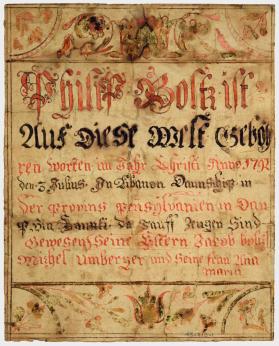 Philip Bolk ist
Auf Diese Welt Geboh
ren worten im Jahr Christi Anno 1792
den 3 Julius In Libanon Daunschip in
Der Provins Pensylvanien in Dau
Die Tauff Zeugen Sind
Gewesen Seine Eltern Jacob
Michel Umberger und Seine frau Ana
maria